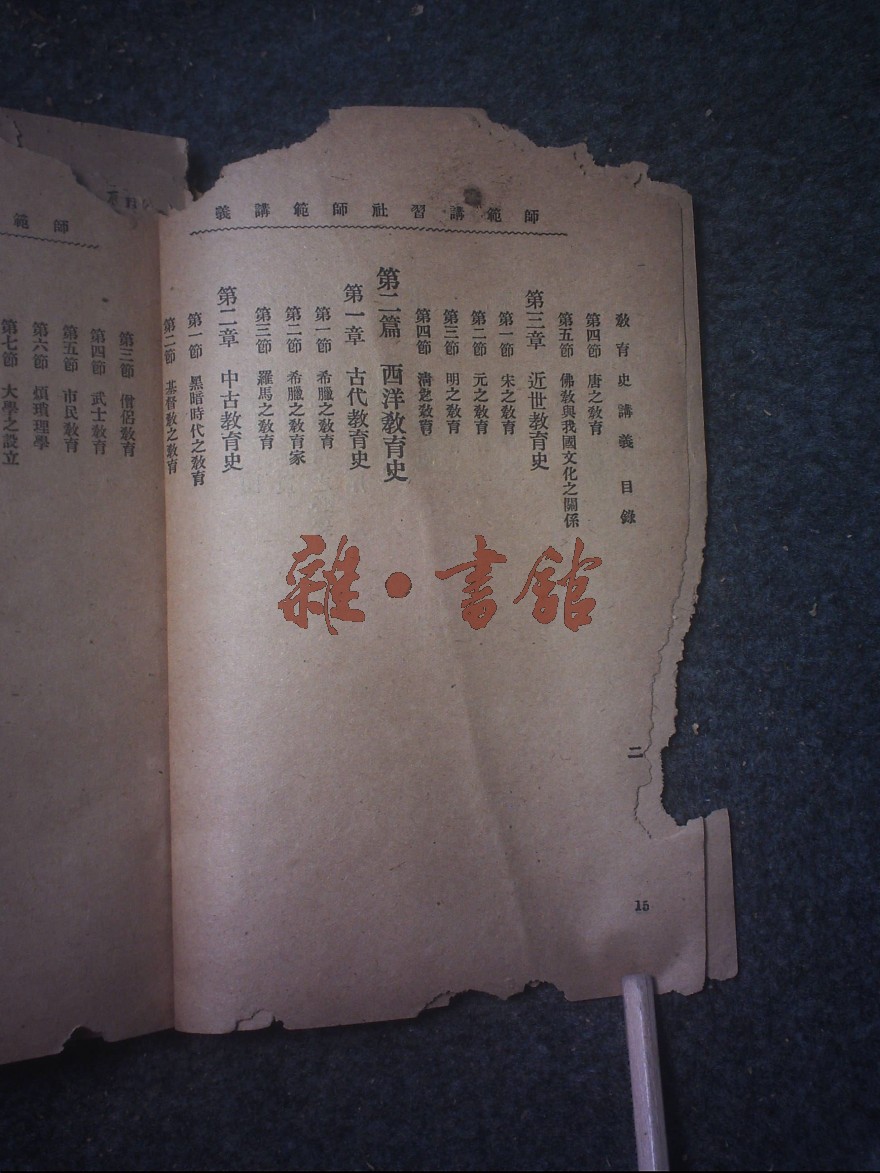 師範講習社師範講義
教育史講義 目錄
第四節 唐之教育
第五節 佛教與我國文化之關係
第三章 近世教育史
第一節 宋之教育
第二節 元之教育
第三節 明之教育
第四節 清之教育
第二篇 西洋教育史
第一章 古代教育史
第一節 希臘之教育
第二節 希臘之教育家
第三節 羅馬之教育
第二章 中古教育史
第一節 黑暗時代之教育
第二節 基督教之教育
二
15
師範
第三節 僧侶教育
第四節 武士教育
第五節 市民教育
第六節 煩瑣理學
第七節 大學之設立
雜·書館